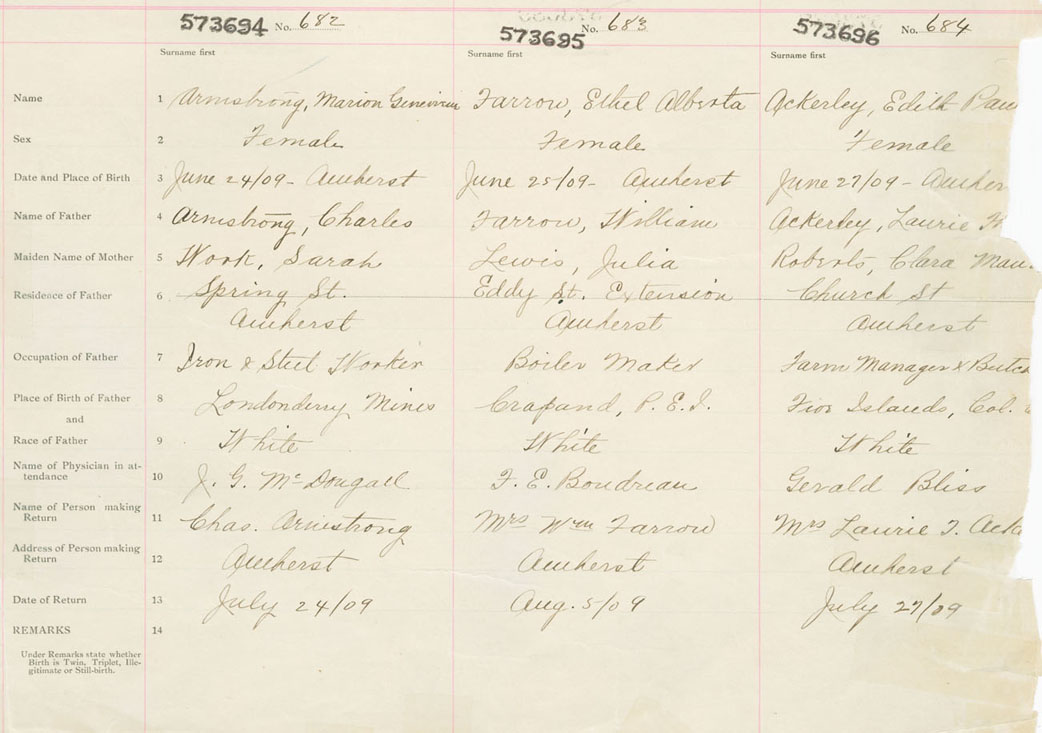 573694 No. 682 573695 No. 683 573696 No. 684
Surname first Surname first Surname first
Name 1 Armstrong, Marion Farrow, Ethel Alberta Ackerley, Edith
Sex 2 Female Female Female
Date and Place of Birth 3 June 24/09- Amherst June 25/09- Amherst June 27/09- Amher
Name of Father 4 Armstrong, Charles Farrow, William Ackerley, Laurie
Maiden Name of Mother 5 Work, Sarah Lewis, Julia Roberts, Clara
Residence of Father 6 Spring St. Eddy St. Extension Church St
Amherst Amherst Amherst
Occupation of Father 7 Iron & Steel Worker Boiler Maker Farm Manager & Butch
Place of Birth of Father 8 Londonderry Mines Crapaud, P.E.I. Five Islands, Col.
and
Race of Father 9 White White White
Name of Physician in at-
tendance 10 J. G. McDougall F. E. Boudreau Gerald Bliss
Name of Person making
Return 11 Chas. Armstrong Mrs Wm Farrow Mrs Laurie
Address of Person making
Return 12 Amherst Amherst Amherst
Date of Return 13 July 24/09 Aug. 5/09 July 27/09
REMARKS 14
Under Remarks state whether
Birth is Twin, Triplet, Ille-
gitimate or Still-birth.